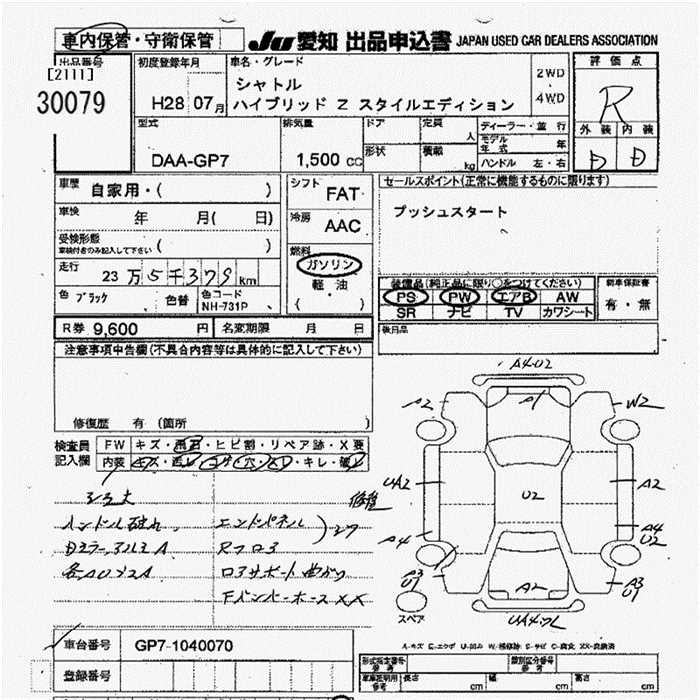 車内保管・守衛保管
JU 愛知 出品申込書 JAPAN USED CAR DEALERS ASSOCIATION
出品番号
[2111]
30079
初度登録年月
H28 07月
車名・グレード
シャトル
ハイブリッド Z スタイルエディション
2WD
・
4WD
評価点
R
外装 内装
D D
型式
DAA-GP7
排気量
1,500 cc
ドア
定員
人
形状
積載
kg
ディーラー・並行
モデル年式 年
ハンドル 左・右
車歴 自家用・( )
車検 年 月( 日)
受検形態
車検付きのみ記入して下さい ( )
走行
23 万 5千379 km
色 ブラック
色替
色コード
NH-731P
シフト
FAT
冷房
AAC
燃料
ガソリン
・
軽油
( )
セールスポイント(正常に機能するものに限ります)
プッシュスタート
装備品(純正品に限り○をつけてください)
PS PW エアB AW
SR ナビ TV カワシート
新車保証書
有・無
後日品
R券 9,600 円
名変期限 月 日
注意事項申告欄(不具合内容等は具体的に記入して下さい)
修復歴 有 (箇所 )
検査員
記入欄
FW キズ・飛石・ヒビ割・リペア跡・X 要
内装
シミ大
ハンドル
Dミラー
各AUX2A
修復
エンドパネル
Rフロア
ロアサポート曲がり
FバンパーホースXX
A4-U2
A2
A1
W2
UA2
A2
U2
A4
A4
U2
A3
U1
A2
A3
U1
スペア
車台番号 GP7-1040070
登録番号
型式指定番号
類別区分番号
長さ cm
幅 cm
高さ cm